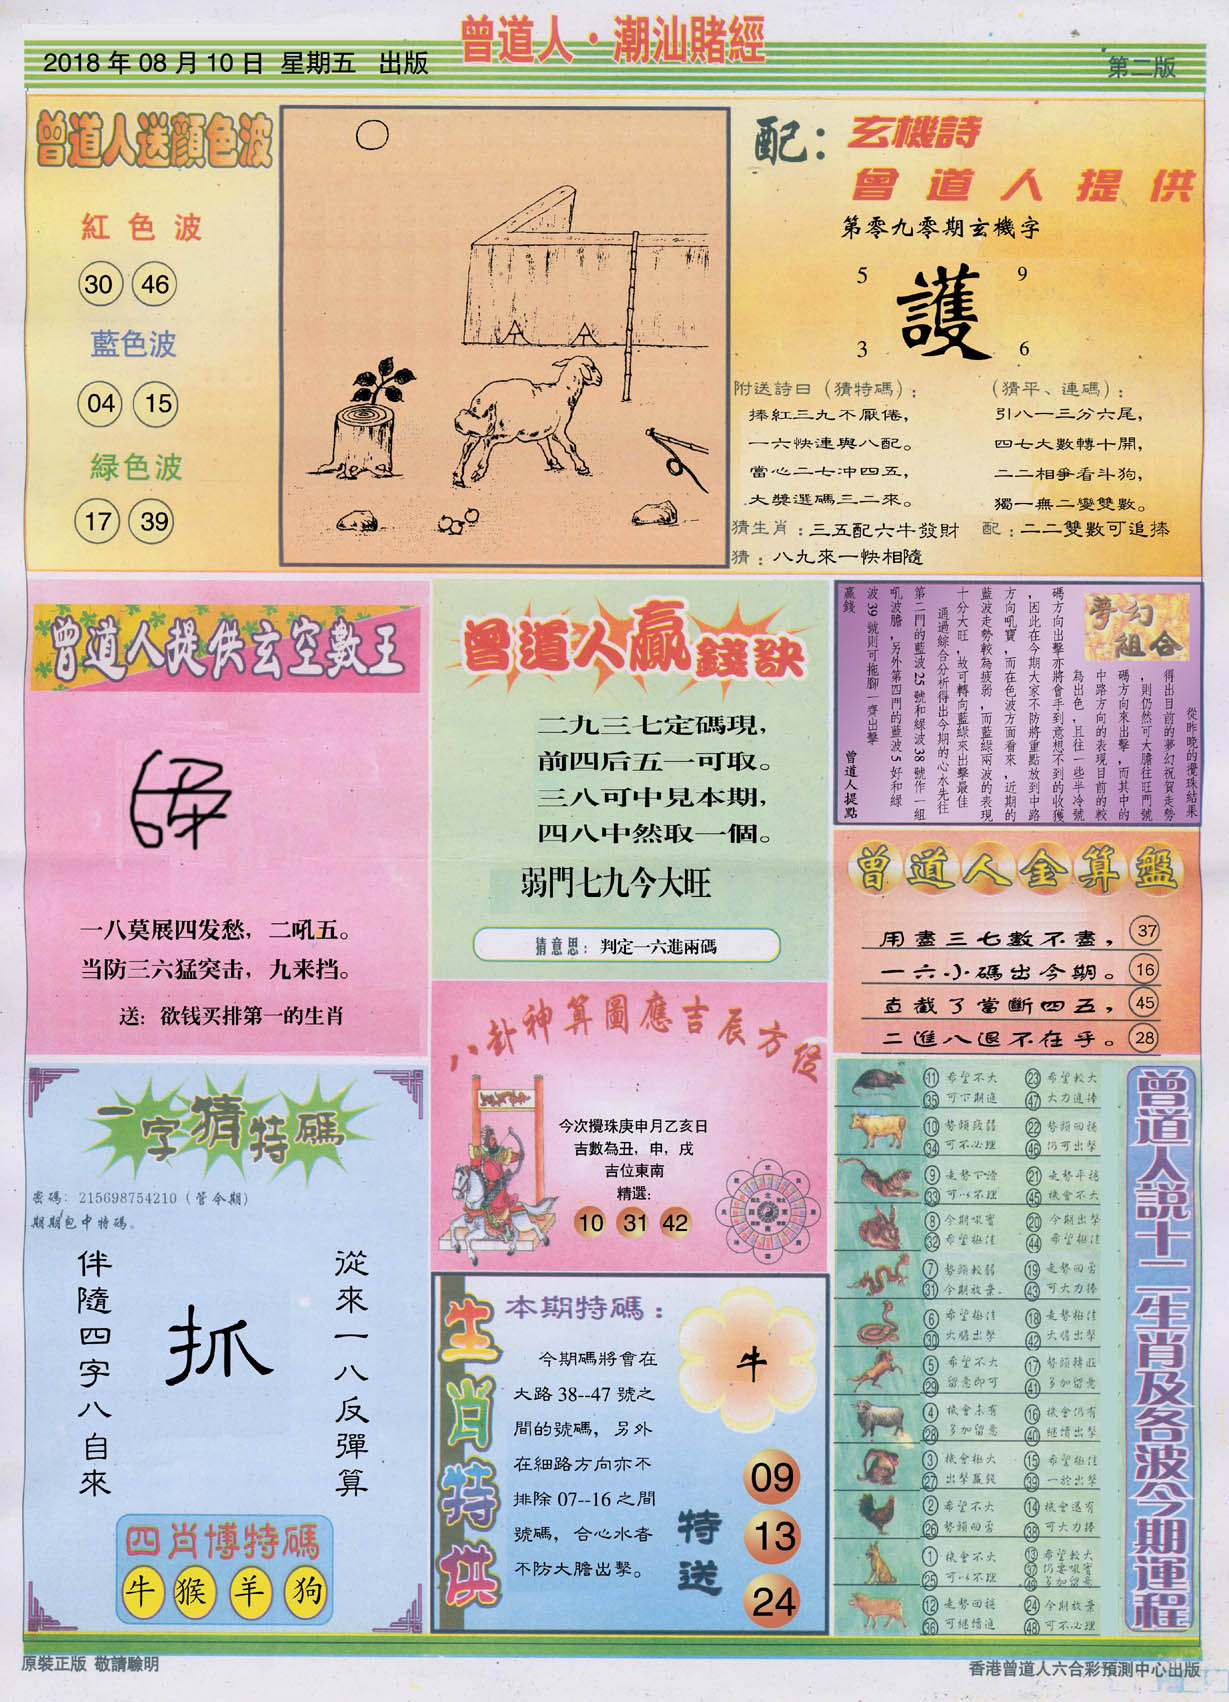 曾道人·潮汕賭經
2018年08月10日 星期五 出版
第二版
曾道人送顏色波
紅色波
30 46
藍色波
04 15
緑色波
17 39
配：玄機詩
曾道人提供
第零九零期玄機字
5 9
護
3 6
附送詩曰（猜特碼）：
捧紅三九不厭倦，
一六快連與八配。
當心二七冲四五，
大獎選碼三二來。
（猜平、連碼）：
引八一三分六尾，
四七大數轉十開，
二二相爭看斗狗，
獨一無二變雙數。
猜生肖：三五配六牛發財
配：二二雙數可追捧
猜：八九來一快相隨
曾道人提供玄空數王
一八莫展四发愁，二吼五。
当防三六猛突击，九来挡。
送：欲钱买排第一的生肖
曾道人贏錢訣
二九三七定碼現，
前四后五一可取。
三八可中見本期，
四八中然取一個。
弱門七九今大旺
猜意思：判定一六進兩碼
夢幻組合
從昨晚的攪珠結果
得出目前的夢幻祝賀走勢
，則仍然可大膽往旺門號
碼方向來出擊，而其中的
中路方向的表現目前的較
為出色，且往一些半冷號
碼方向出擊亦將會手到意想不到的收獲
，因此在今期大家不防將重點放到中路
方向吼寶，而在色波方面看來，近期的
藍波走勢較為疲弱，而藍綠兩波的表現
十分大旺，故可轉向藍綠來出擊最佳
通過綜合分析得出今期的心水先往
第二門的藍波25號和綠波38號作一組
吼波膽，另外第四門的藍波5好和綠
波39號則可拖腳一齊出擊
贏錢
曾道人提點
曾道人金算盤
用盡三七數不盡， 37
一六小碼出今期。 16
直截了當斷四五， 45
二進八退不在乎。 28
一字猜特碼
密碼：215698754210（管今期）
期期包中特碼。
從來一八反彈算
抓
伴隨四字八自來
四肖博特碼
牛 猴 羊 狗
八卦神算圖應吉辰方位
今次攪珠庚申月乙亥日
吉數為丑，申，戌
吉位東南
精選：
10 31 42
生肖特供
本期特碼：
牛
今期碼將會在
大路38--47號之
間的號碼，另外
在細路方向亦不
排除07--16之間
號碼，合心水者
不防大膽出擊。
特送
09
13
24
曾道人説十二生肖及各波今期運程
11 希望不大 23 希望較大
35 可下期進 47 大力進捧
10 勢頭疲弱 22 勢頭回穩
34 可不必理 46 仍可出擊
9 走勢下滑 21 走勢平穩
33 可以不理 45 機會不大
8 今期吸實 20 今期出擊
32 希望極佳 44 希望極佳
7 勢頭較弱 19 走勢回勇
31 今期放棄 43 可大力捧
6 希望極佳 18 走勢極佳
30 大膽出擊 42 大膽出擊
5 希望不大 17 勢頭轉旺
29 留意即可 41 多加留意
4 機會未有 16 機會仍有
28 多加留意 40 繼續出擊
3 機會極大 15 希望極佳
27 出擊贏錢 39 一於出擊
2 希望不大 14 機會還有
26 勢頭回勇 38 可大力捧
1 機會不大 13 希望較大
25 可以不理 37 仍要吸實
49 多加留意
12 走勢回穩 24 今期放棄
36 可繼續進 48 可不必理
原裝正版 敬請驗明
香港曾道人六合彩預測中心出版